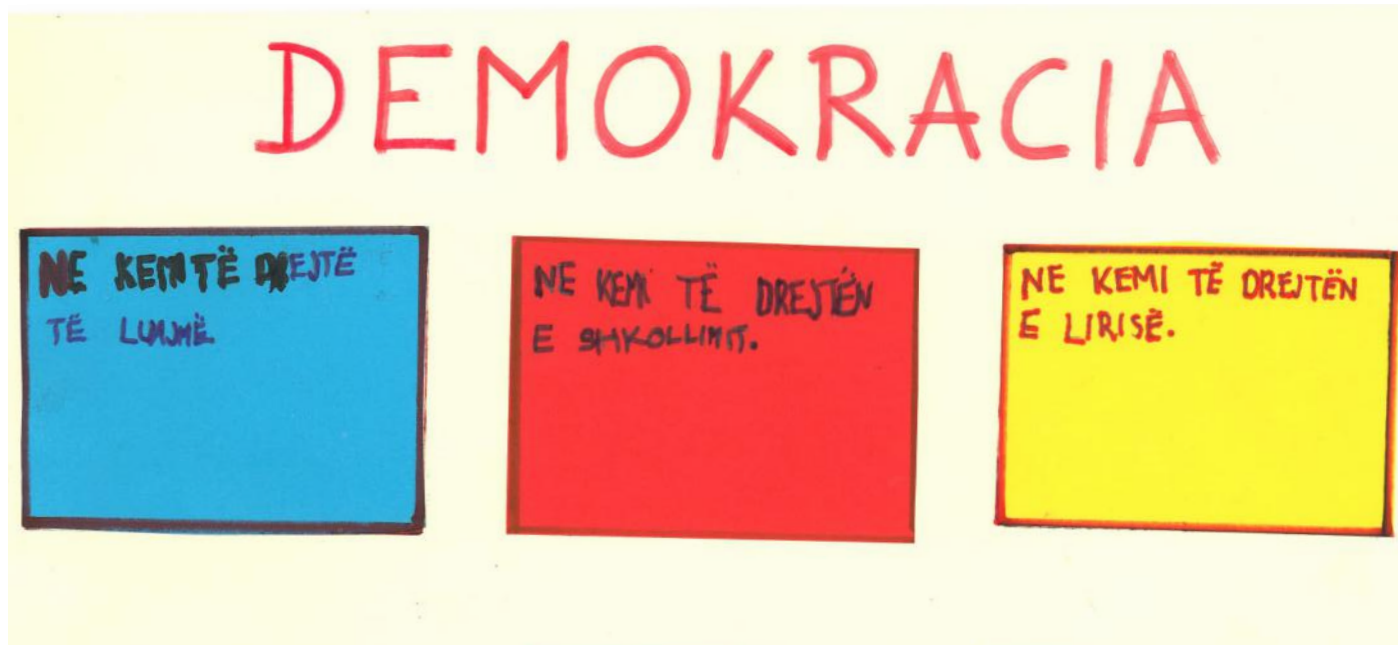 DEMOKRACIA
NE KEMI TË DREJTË
TË LUAJMË
NE KEMI TË DREJTËN
E SHKOLLIMIT.
NE KEMI TË DREJTËN
E LIRISË.